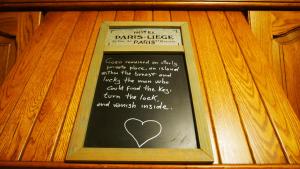 HOTEL
PARIS-LIEGE
PARIS
Gwen remained an utterly
private place, an island
within the breast and
lucky the man who
could find the key,
turn the lock,
and vanish inside.